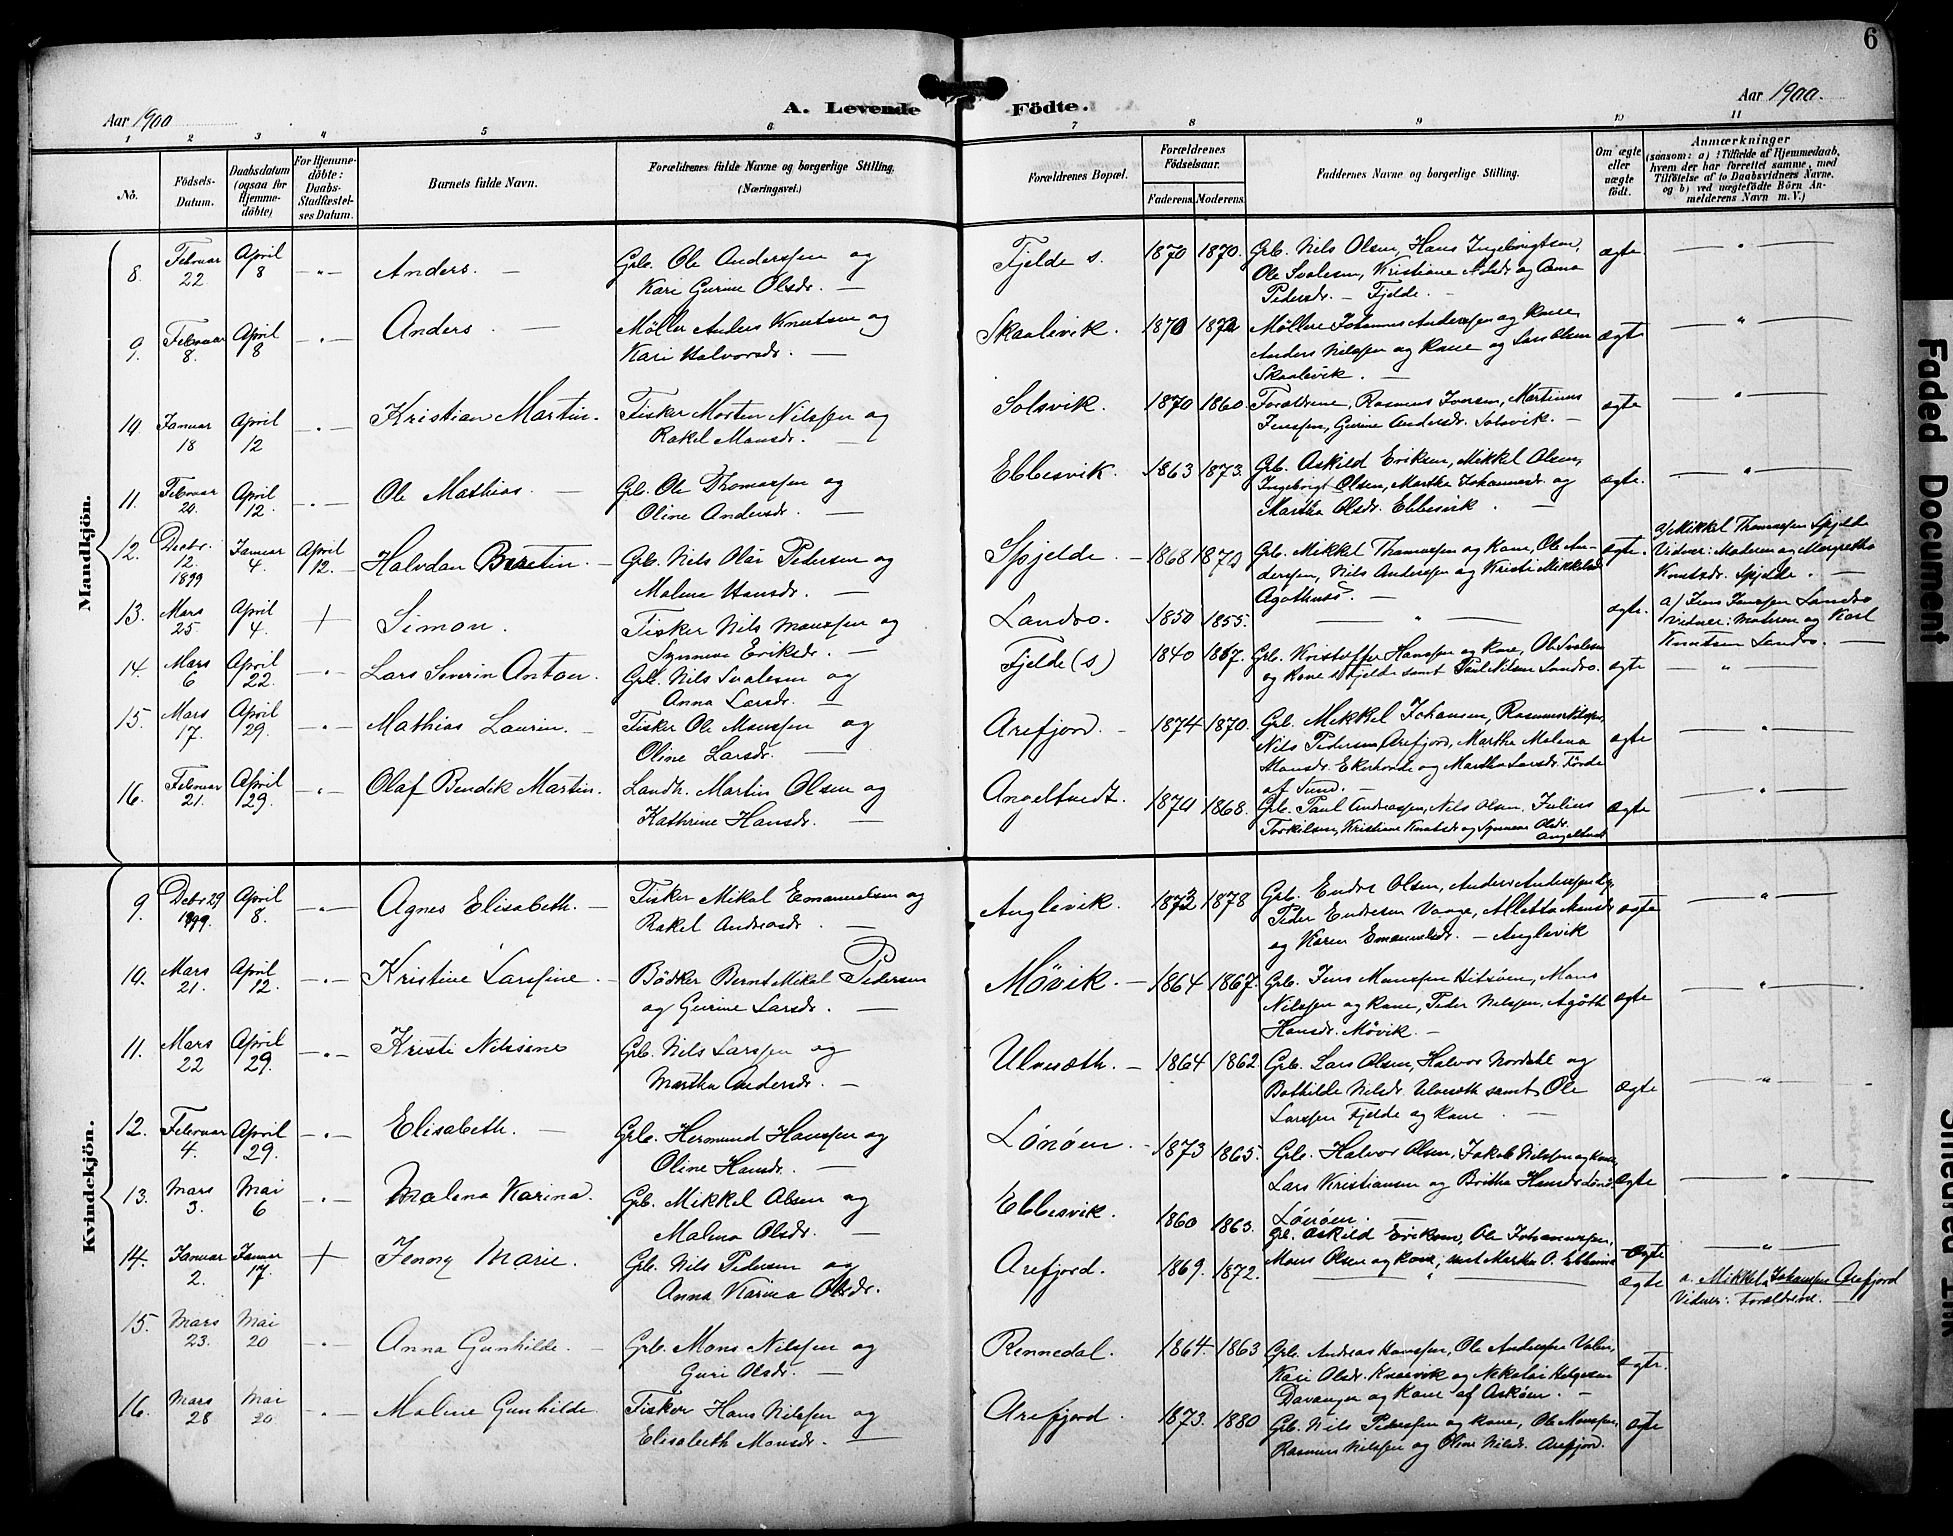 6
Aar 1900
A. Levende Födte.
Aar 1900.
1 2 3 4 5 6 7 8 9 10 11
No.
Födsels-Datum.
Daabsdatum (ogsaa for Hjemme-döbte)
For Hjemme-döbte: Daabs-Stadfæstel-ses Datum.
Barnets fulde Navn.
Forældrenes fulde Navne og borgerlige Stilling.
(Næringsvei.)
Forældrenes Bopæl.
Forældrenes Födselsaar.
Faderens. Moderens.
Faddernes Navne og borgerlige Stilling.
Om ægte eller uægte födt.
Anmærkninger
(saasom: a) i Tilfælde af Hjemmedaab,
hvem der har forrettet samme, med
Tilföielse af to Daabsvidners Navne,
og b) ved uægtefödte Börn An-
melderens Navn m. V.)
Mandkjön.
8. Februar 22 April 8 Anders. Grb. Ole Anderssen og
Kari Gurine Olsdr.
Fjelde s. 1870 1870. Grb. Nils Olsen, Hans Ingebrigtsen,
Ole Svalesen, Kristiane Nilsdr og Anna
Pedersdr. Fjelde. ægte
9. Februar 8. April 8 Anders Møller Anders Knutsen og
Kari Halvorsdr.
Skaalevik. 1870 1872 Møllere Johannes Anderssen og Kone,
Anders Nilssen og Kone og Lars Olsen
Skaalevik. ægte
10 Januar 18 April 12 Kristian Martin. Fisker Morten Nilssen og
Rakel Monsdr.
Solsvik. 1870 1860. Forældrene, Rasmus Iversen, Martinus
Jenssen, Gurine Andersdr. Solsvik. ægte
11. Februar 20. April 12. Ole Mathias. Grb. Ole Thomassen og
Oline Andersdr.
Ebbesvik. 1863 1873. Grb. Askild Eriksen, Mikkel Olsen,
Ingebrigt Olsen, Martha Johannesdr. og
Martha Olsdr. Ebbesvik. ægte.
12. Decbr. 12. 1899 Januar 4. April 12. Halvdan Grb. Nils Olai Pedersen og
Malena Hansdr.
Spjelde 1868 Grb. Mikkel Thomassen og Kone, Ole An-
derssen, Nils Anderssen og Kristi Mikkelsdr
Agothnæs. ægte. a/ Mikkel Thomassen Spjelde
Vidner: Moderen og Margretha
Knutsdr. Spjelde.
13. Mars 25. April 4. + Simon. Fisker Nils Monssen og
Synneve Eriksdr.
Landro. 1850 1855. ægte. a/ Jens Jenssen Landro
Vidner: Moderen og Karl
Knutsen Landro.
14. Mars 6 April 22. Lars Severin Anton. Grb. Nils Svalesen og
Anna Larsdr.
Fjelde (s) 1840 1867. Grb. Kristoffer Hanssen og Kone, Ole Svalesen
og Kone Fjelde samt Paul Nilsen Landro. ægte
15. Mars 17. April 29. Mathias Laurin. Fisker Ole Monssen og
Oline Larsdr.
Arefjord. 1874 1870. Grb. Mikkel Johansen, Rasmus Nilssen,
Nils Pedersen Arefjord, Martha Malena
Monsdr. Ekerhovde og Martha Larsdr.Förde
af Sund. ægte
16. Februar 21. April 29. Olaf Bendik Martin. Landh. Martin Olsen og
Kathrine Hansdr.
Angeltvedt. 1874 1868. Grb. Paul Andreassen, Nils Olsen, Julius
Torkilsen, Kristiane Knutsdr og Synneve Olsdr.
Angeltvedt ægte
Kvindekjön.
9. Debr 29 1899. April 8. Agnes Elisabeth. Fisker Mikal Emanuelsen og
Rakel Andreasdr.
Anglevik. 1873 1878 Grb. Endre Olsen, Anders Anderssen og
Peder Endresen Vaage, Alletta Monsdr
og Karen Emanuelsdr. Anglevik ægte
10. Mars 21. April 12. Kristine Larsfine Bödker Bernt Mikal Pedersen
og Gurine Larsdr.
Møvik. 1864 1867. Grb. Jens Monssen Hitsöen, Mons
Nilssen og Kone, Peder Nilssen, Agöth
Hansdr. Møvik. ægte
11. Mars 22 April 29. Kristi Nilsine Grb. Nils Larssen og
Martha Andersdr.
Ulvesæth. 1864 1862. Grb. Lars Olsen, Halvor
Bothilde Nilsdr. Ulvesæth samt Ole
Larssen Fjelde og Kone. ægte
12. Februar 4. April 29. Elisabeth. Grb. Hermund Hanssen og
Oline Hansdr.
Lönöen. 1873 1865. Grb. Halvor Olsen, Jakob Nilssen og Kone,
Lars Kristiansen og Britha Hansdr
Lönöen. ægte
13. Mars 3. Mai 6 Malena Karina. Grb. Mikkel Olsen og
Malena Olsdr.
Ebbesvik. 1860 1863. Gr. Askild Eriksen, Ole Johannessen,
Mons Olsen og Kone, samt Martha O. Ebbesvik ægte
14. Januar 2. Januar 17. + Jenny Marie. Grb. Nils Pedersen og
Anna Karina Olsdr.
Arefjord. 1869. 1872. ægte a. Mikkel Johanssen Arefjord
Vidner: Forældrene.
15. Mars 23. Mai 20 Anna Gunhilde. Grb. Mons Nilssen og
Guri Olsdr.
Rennedal. 1864. 1863 Grb. Andreas Hanssen, Ole Anderssen
Kari Olsdr. Knarvik og Nikolai Helgesen
Davanger og Kone af Asköen. ægte.
16. Mars 28 Mai 20. Malene Gunhilde. Fisker Hans Nilssen og
Elisabeth Monsdr.
Arefjord. 1873. 1880 Grb. Nils Pederssen og Kone, Ole Monssen,
Rasmus Nilssen og Oline Nilsdr. Arefjord. ægte
Faded Document
Smeared Ink